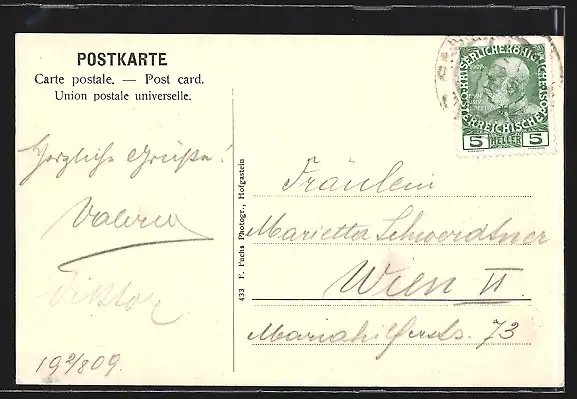 POSTKARTE
Carte postale. — Post card.
Union postale universelle.
Herzliche Grüße!
Valerie
Viktor
19 2/8 09.
433 F. Fuchs Photogr., Hofgastein
KAISERLICHE KÖNIGLICHE
ÖSTERREICHISCHE POST
5 HELLER 5
Fräulein
Marietta Schwerdtner
Wien II
Mariahilferstr. 73